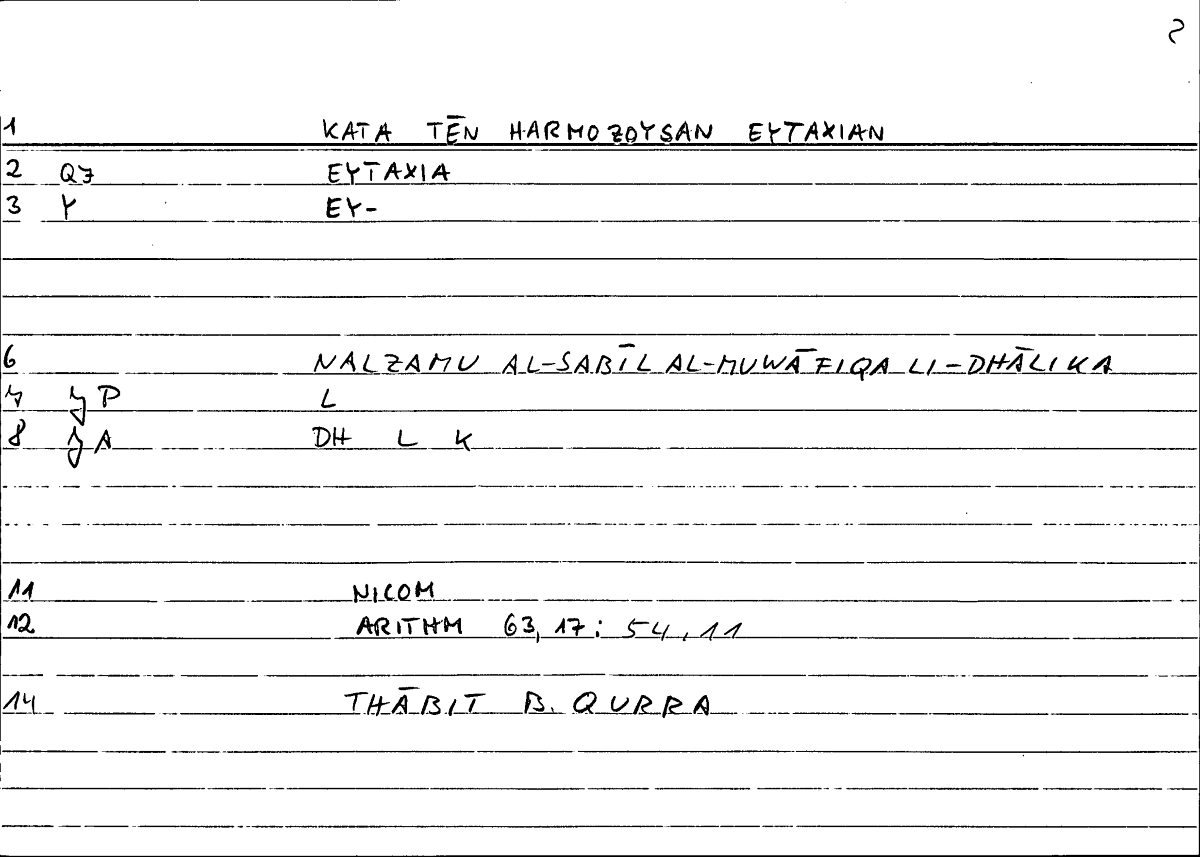 1 KATA TĒN HARMOZOYSAN EYTAXIAN
2 EYTAXIA
3 Y EY-
6 NALZAMU AL-SABĪL AL-MUWĀFIQA LI-DHĀLIKA
7 P L
8 A DH L K
11 NICOM
12 ARITHM 63,17: 54,11
14 THĀBIT B. QURRA